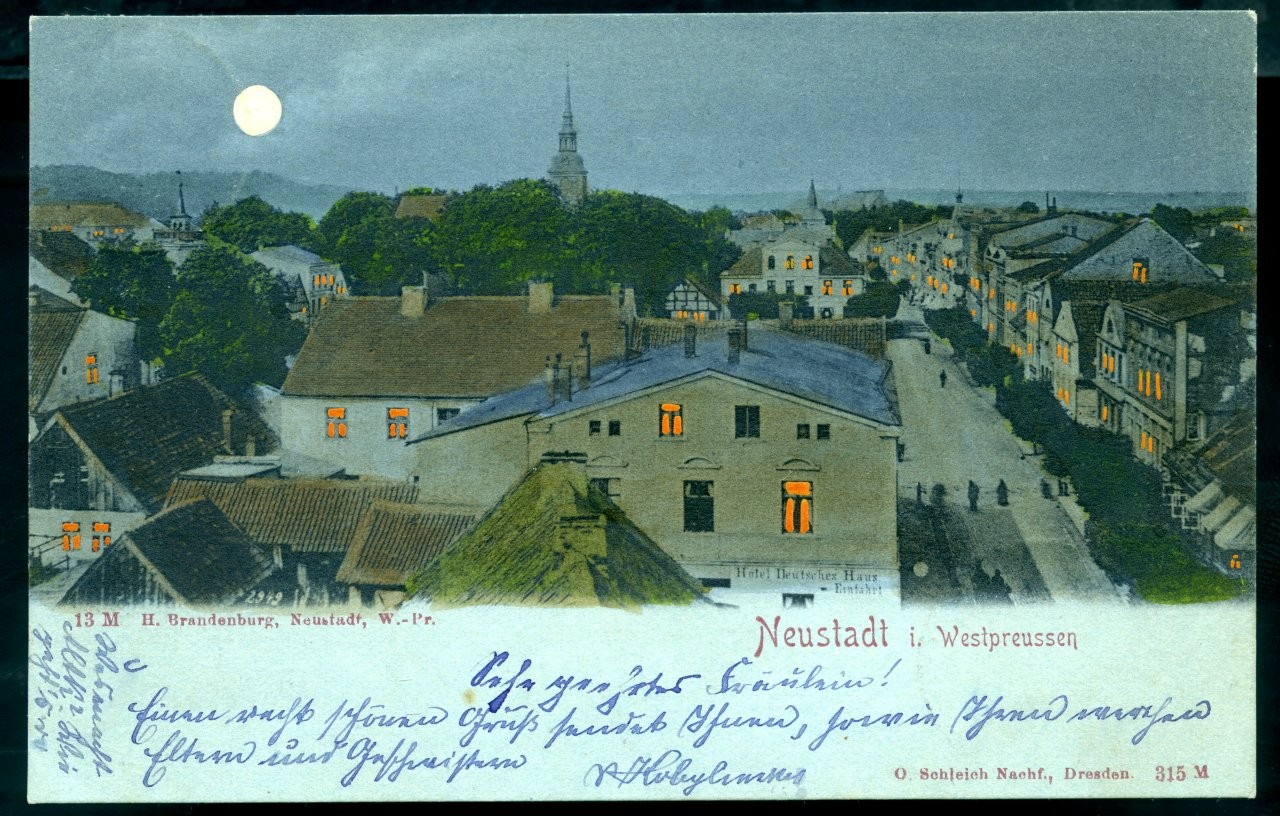 Hotel Deutsches Haus
Einfahrt
2949
13 M H. Brandenburg, Neustadt, W.-Pr.
Neustadt i. Westpreussen
Sehr geehrtes Fräulein!
Einen recht schönen Gruß sendet Ihnen, sowie Ihren werthen
Eltern und Geschwistern
O. Schleich Nachf., Dresden. 315 M